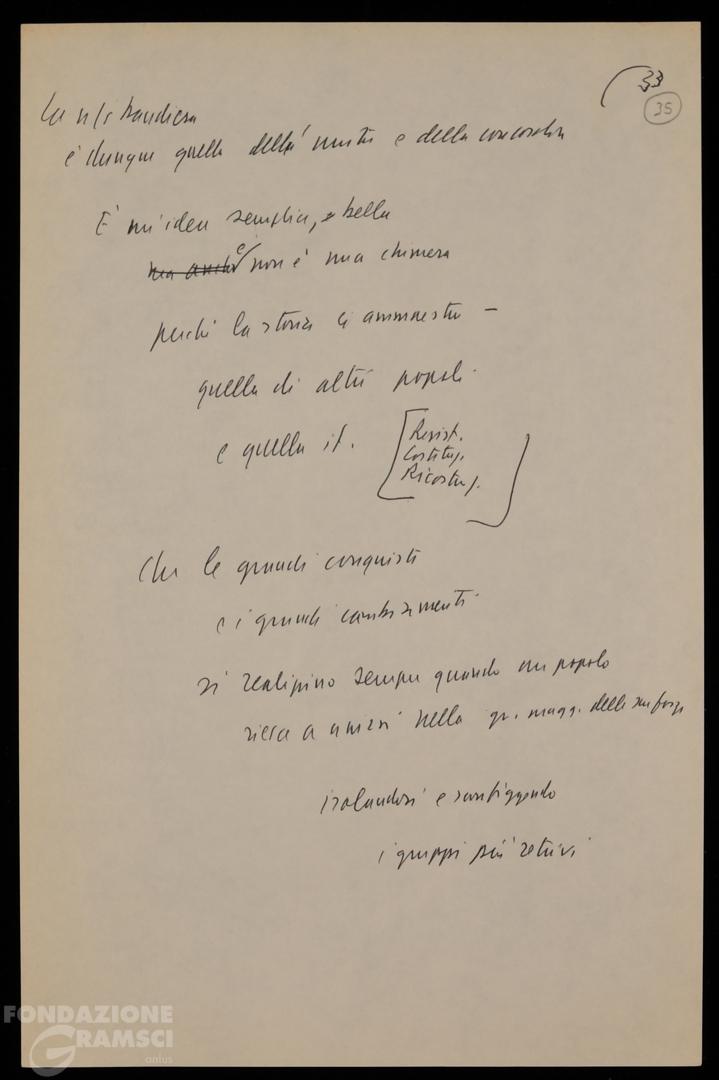 33
35
La n/s bandiera
è dunque quella dell'unità e della concordia
E' un'idea semplice, e bella
ma anche e non è una chimera
perché la storia ci ammaestra –
quella di altri popoli
e quella it. [Resist.
Costituz.
Ricostruz.]
Che le grandi conquiste
e i grandi cambiamenti
si realizzino sempre quando un popolo
riesce a unirsi nella gr. magg. delle sue forze
isolandosi e sconfiggendo
i gruppi più retrivi
FONDAZIONE
GRAMSCI
onlus